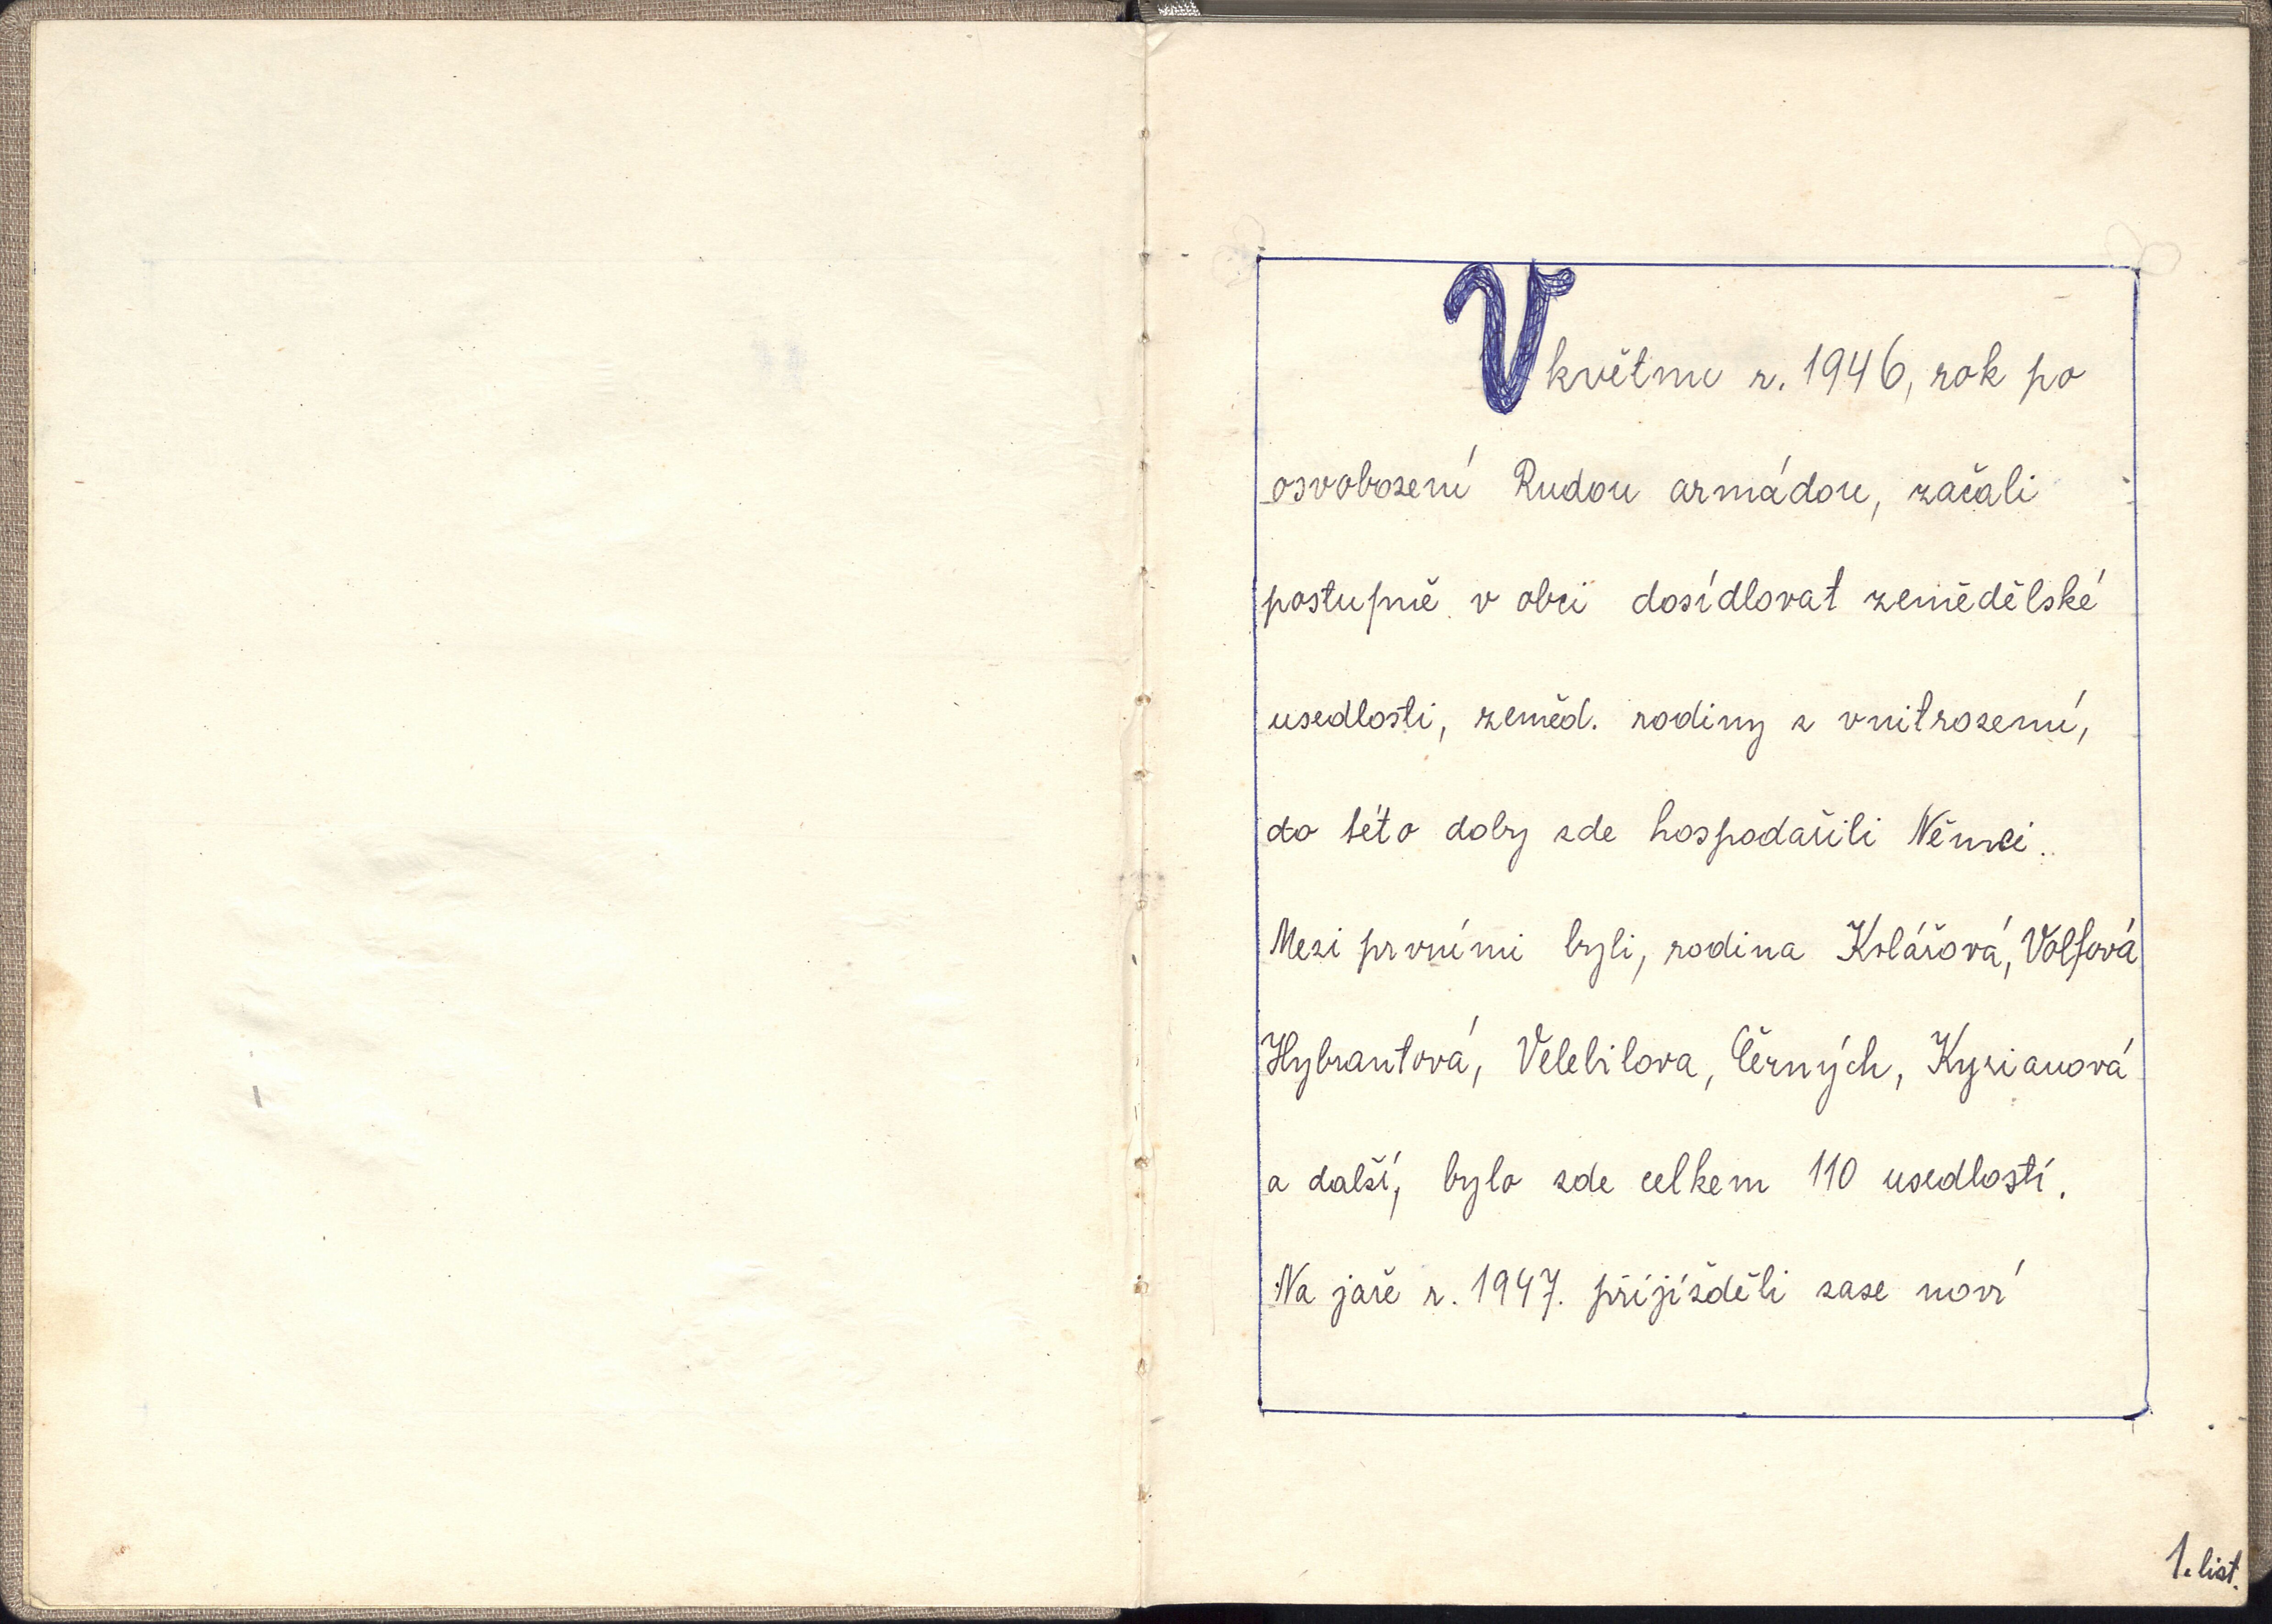 V květnu r. 1946, rok po
osvobození Rudou armádou, začali
postupně v obci dosídlovat zemědělské
usedlosti, zeměd. rodiny z vnitrozemí,
do této doby zde hospodařili Němci.
Mezi prvními byli, rodina Kolářová, Volfová
Hybrantová, Velebilova, Černých, Kyzianová
a další, bylo zde celkem 110 usedlostí.
Na jaře r. 1947. přijížděli zase noví
1. list.